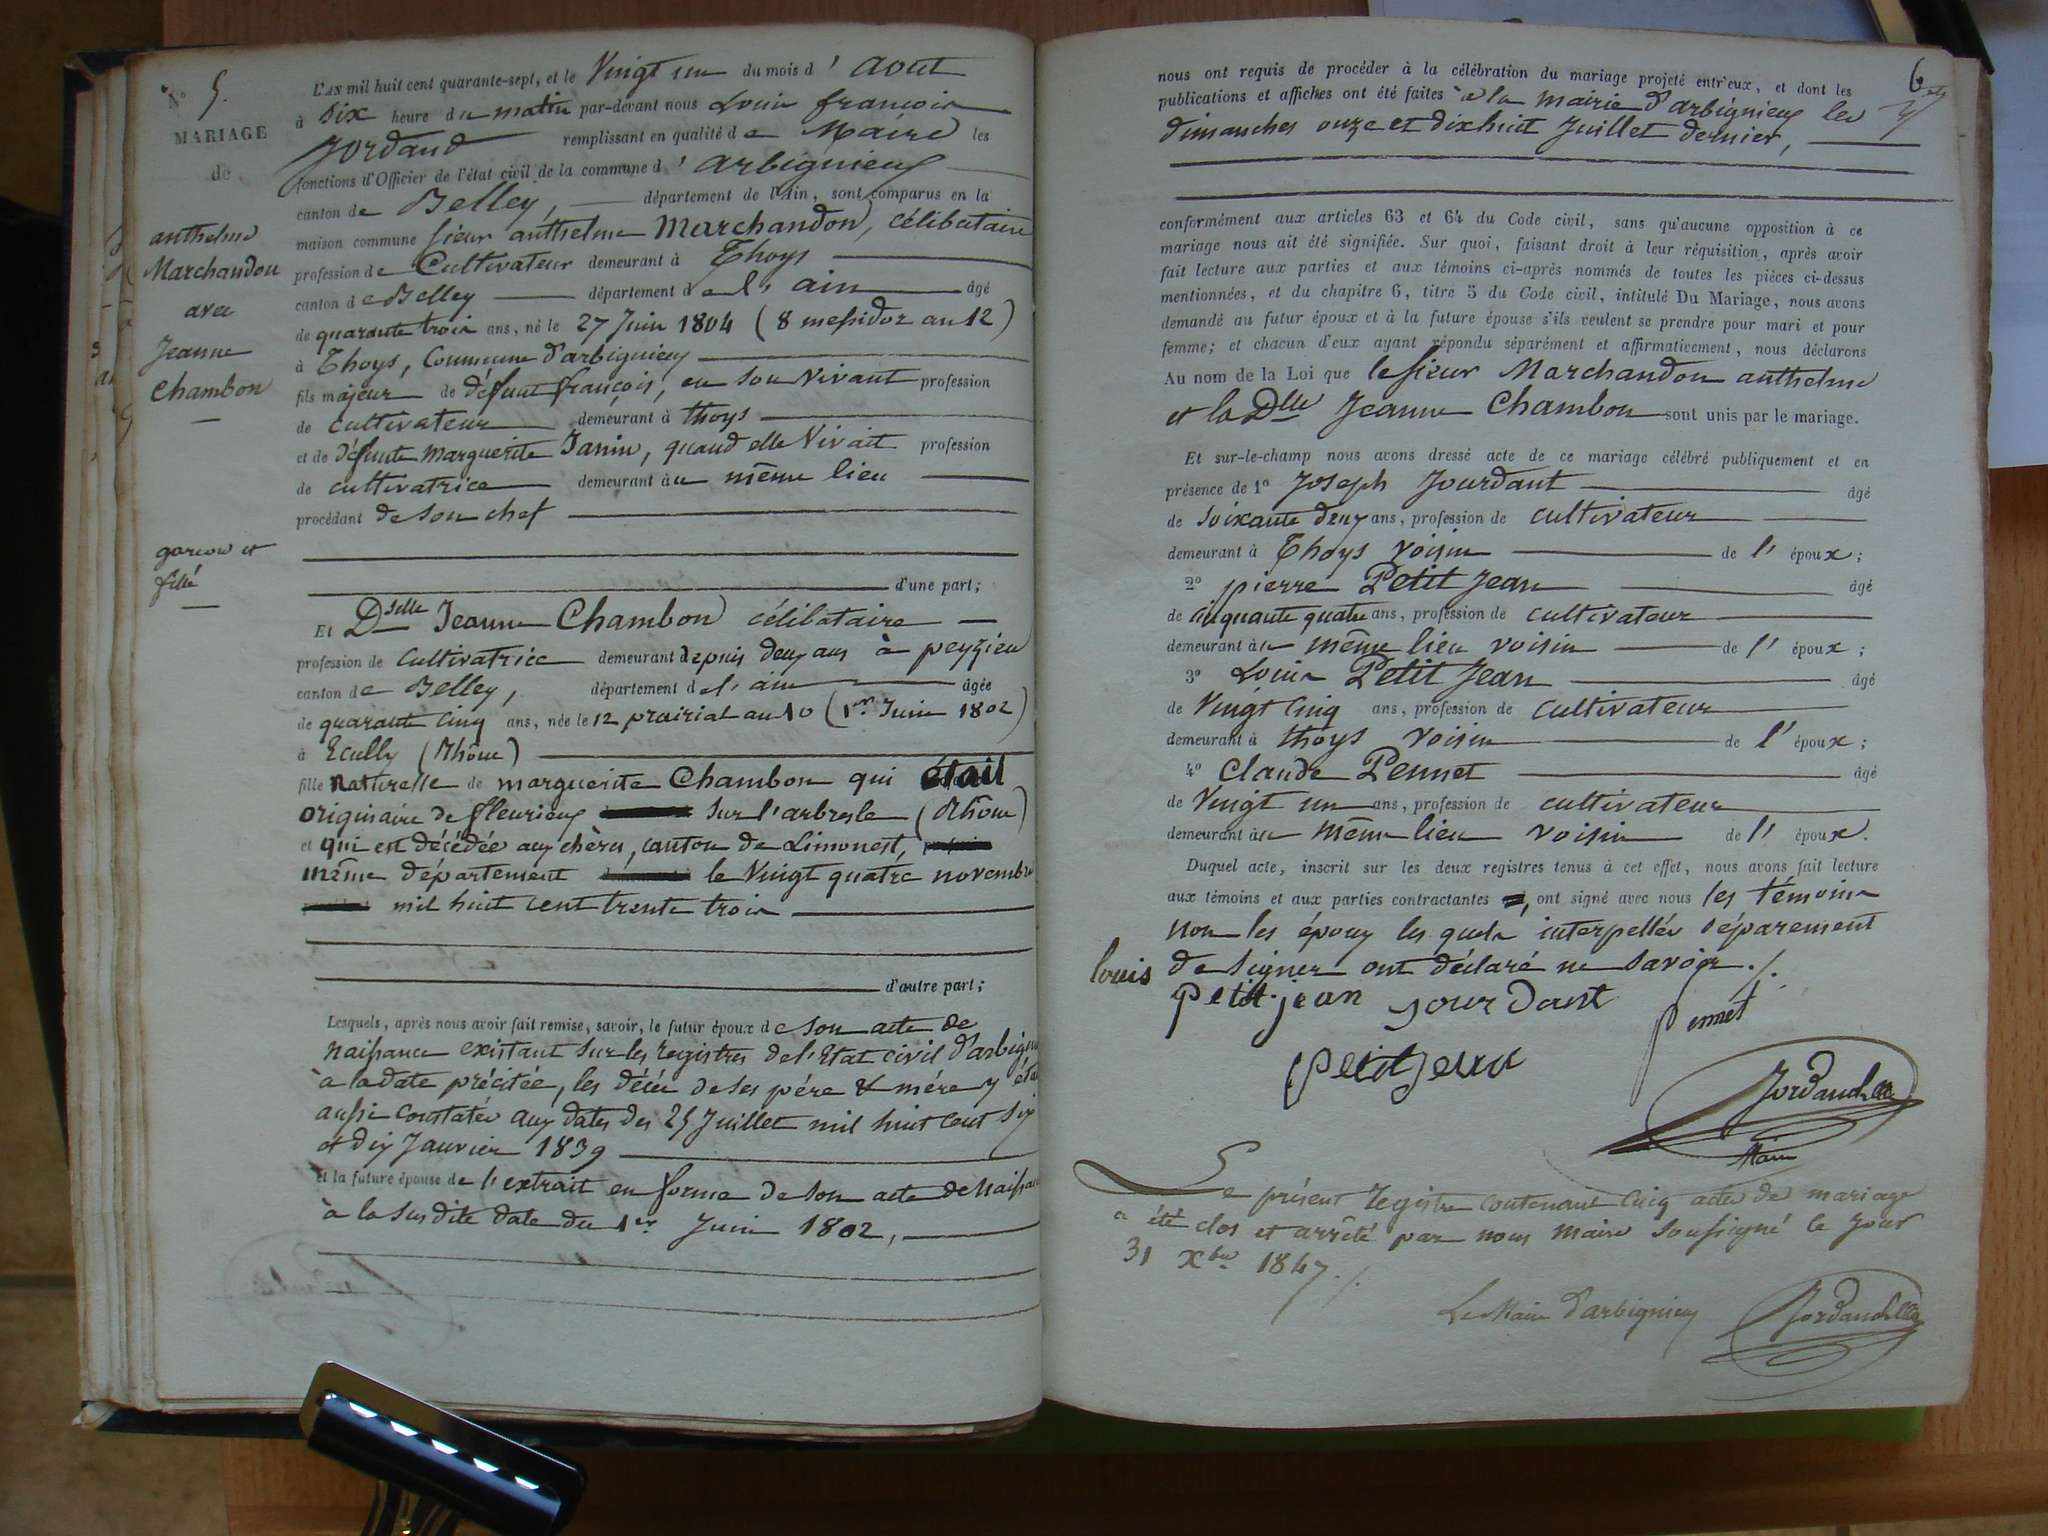 N° 5.
MARIAGE
de
anthelme
Marchandon
avec
Jeanne
Chambon
garcon et
fille
L'AN mil huit cent quarante-sept, et le Vingt un du mois d' aout
à six heure du matin par-devant nous Louis francois
Jordand remplissant en qualité de Maire les
fonctions d'Officier de l'état civil de la commune d' arbignieux
canton de Belley, département de l'Ain, sont comparus en la
maison commune sieur anthelme Marchandon, célibataire
profession de Cultivateur demeurant à Thoys
canton de Belley département de l'ain âgé
de quarante trois ans, né le 27 Juin 1804 (8 messidor an 12)
à Thoys, Commune d'arbignieux
fils majeur de défunt françois, en son vivant profession
de cultivateur demeurant à thoys
et de défunte marguerite Janin, quand elle Vivait profession
de cultivatrice demeurant au même lieu
procédant de son chef
d'une part;
Et Dselle Jeanne Chambon célibataire
profession de cultivatrice demeurant depuis deux ans à peyzieu
canton de Belley, département de l'ain âgée
de quarante cinq ans, née le 12 prairial an 10 (1er Juin 1802)
à Ecully (Rhône)
fille naturelle de marguerite Chambon qui était
originaire de fleurieux sur l'arbresle (Rhône)
et qui est décédée aux chères, canton de Limonest,
même département le Vingt quatre novembre
mil huit cent trente trois
d'autre part;
Lesquels, après nous avoir fait remise, savoir, le futur époux de son acte de
naissance existant sur les registres de l'Etat civil
à la date précitée, les décès de ses père & mère y
aussi constatés aux dates des 25 Juillet mil huit cent six
et dix Janvier 1839
et la future épouse de l'extrait en forme de son acte de
à la susdite date du 1er Juin 1802,
6
nous ont requis de procéder à la célébration du mariage projeté entr'eux, et dont les
publications et affiches ont été faites à la mairie d'arbignieux les
dimanches onze et dixhuit Juillet dernier,
conformément aux articles 63 et 64 du Code civil, sans qu'aucune opposition à ce
mariage nous ait été signifiée. Sur quoi, faisant droit à leur réquisition, après avoir
fait lecture aux parties et aux témoins ci-après nommés de toutes les pièces ci-dessus
mentionnées, et du chapitre 6, titre 5 du Code civil, intitulé Du Mariage, nous avons
demandé au futur époux et à la future épouse s'ils veulent se prendre pour mari et pour
femme; et chacun d'eux ayant répondu séparément et affirmativement, nous déclarons
Au nom de la Loi que le sieur Marchandon anthelme
et la Dlle Jeanne Chambon sont unis par le mariage.
Et sur-le-champ nous avons dressé acte de ce mariage célébré publiquement et en
présence de 1° Joseph Jourdant âgé
de soixante deux ans, profession de cultivateur
demeurant à Thoys voisin de l' époux;
2° pierre Petit Jean âgé
de cinquante quatre ans, profession de cultivateur
demeurant au même lieu voisin de l' époux;
3° Louis Petit Jean âgé
de Vingt Cinq ans, profession de cultivateur
demeurant à thoys voisin de l' époux;
4° Claude Pennet âgé
de Vingt un ans, profession de cultivateur
demeurant au même lieu voisin de l' époux.
Duquel acte, inscrit sur les deux registres tenus à cet effet, nous avons fait lecture
aux témoins et aux parties contractantes, ont signé avec nous les témoins
non les époux les quels interpellés séparement
de signer ont déclaré ne savoir ./.
louis
petit jean jourdant pennet
petit jean
Jordand
Maire
Le présent registre contenant cinq actes de mariage
a été clos et arrêté par nous maire soussigné le jour
31 Xbre 1847 ./.
Le Maire d'arbignieux Jordand